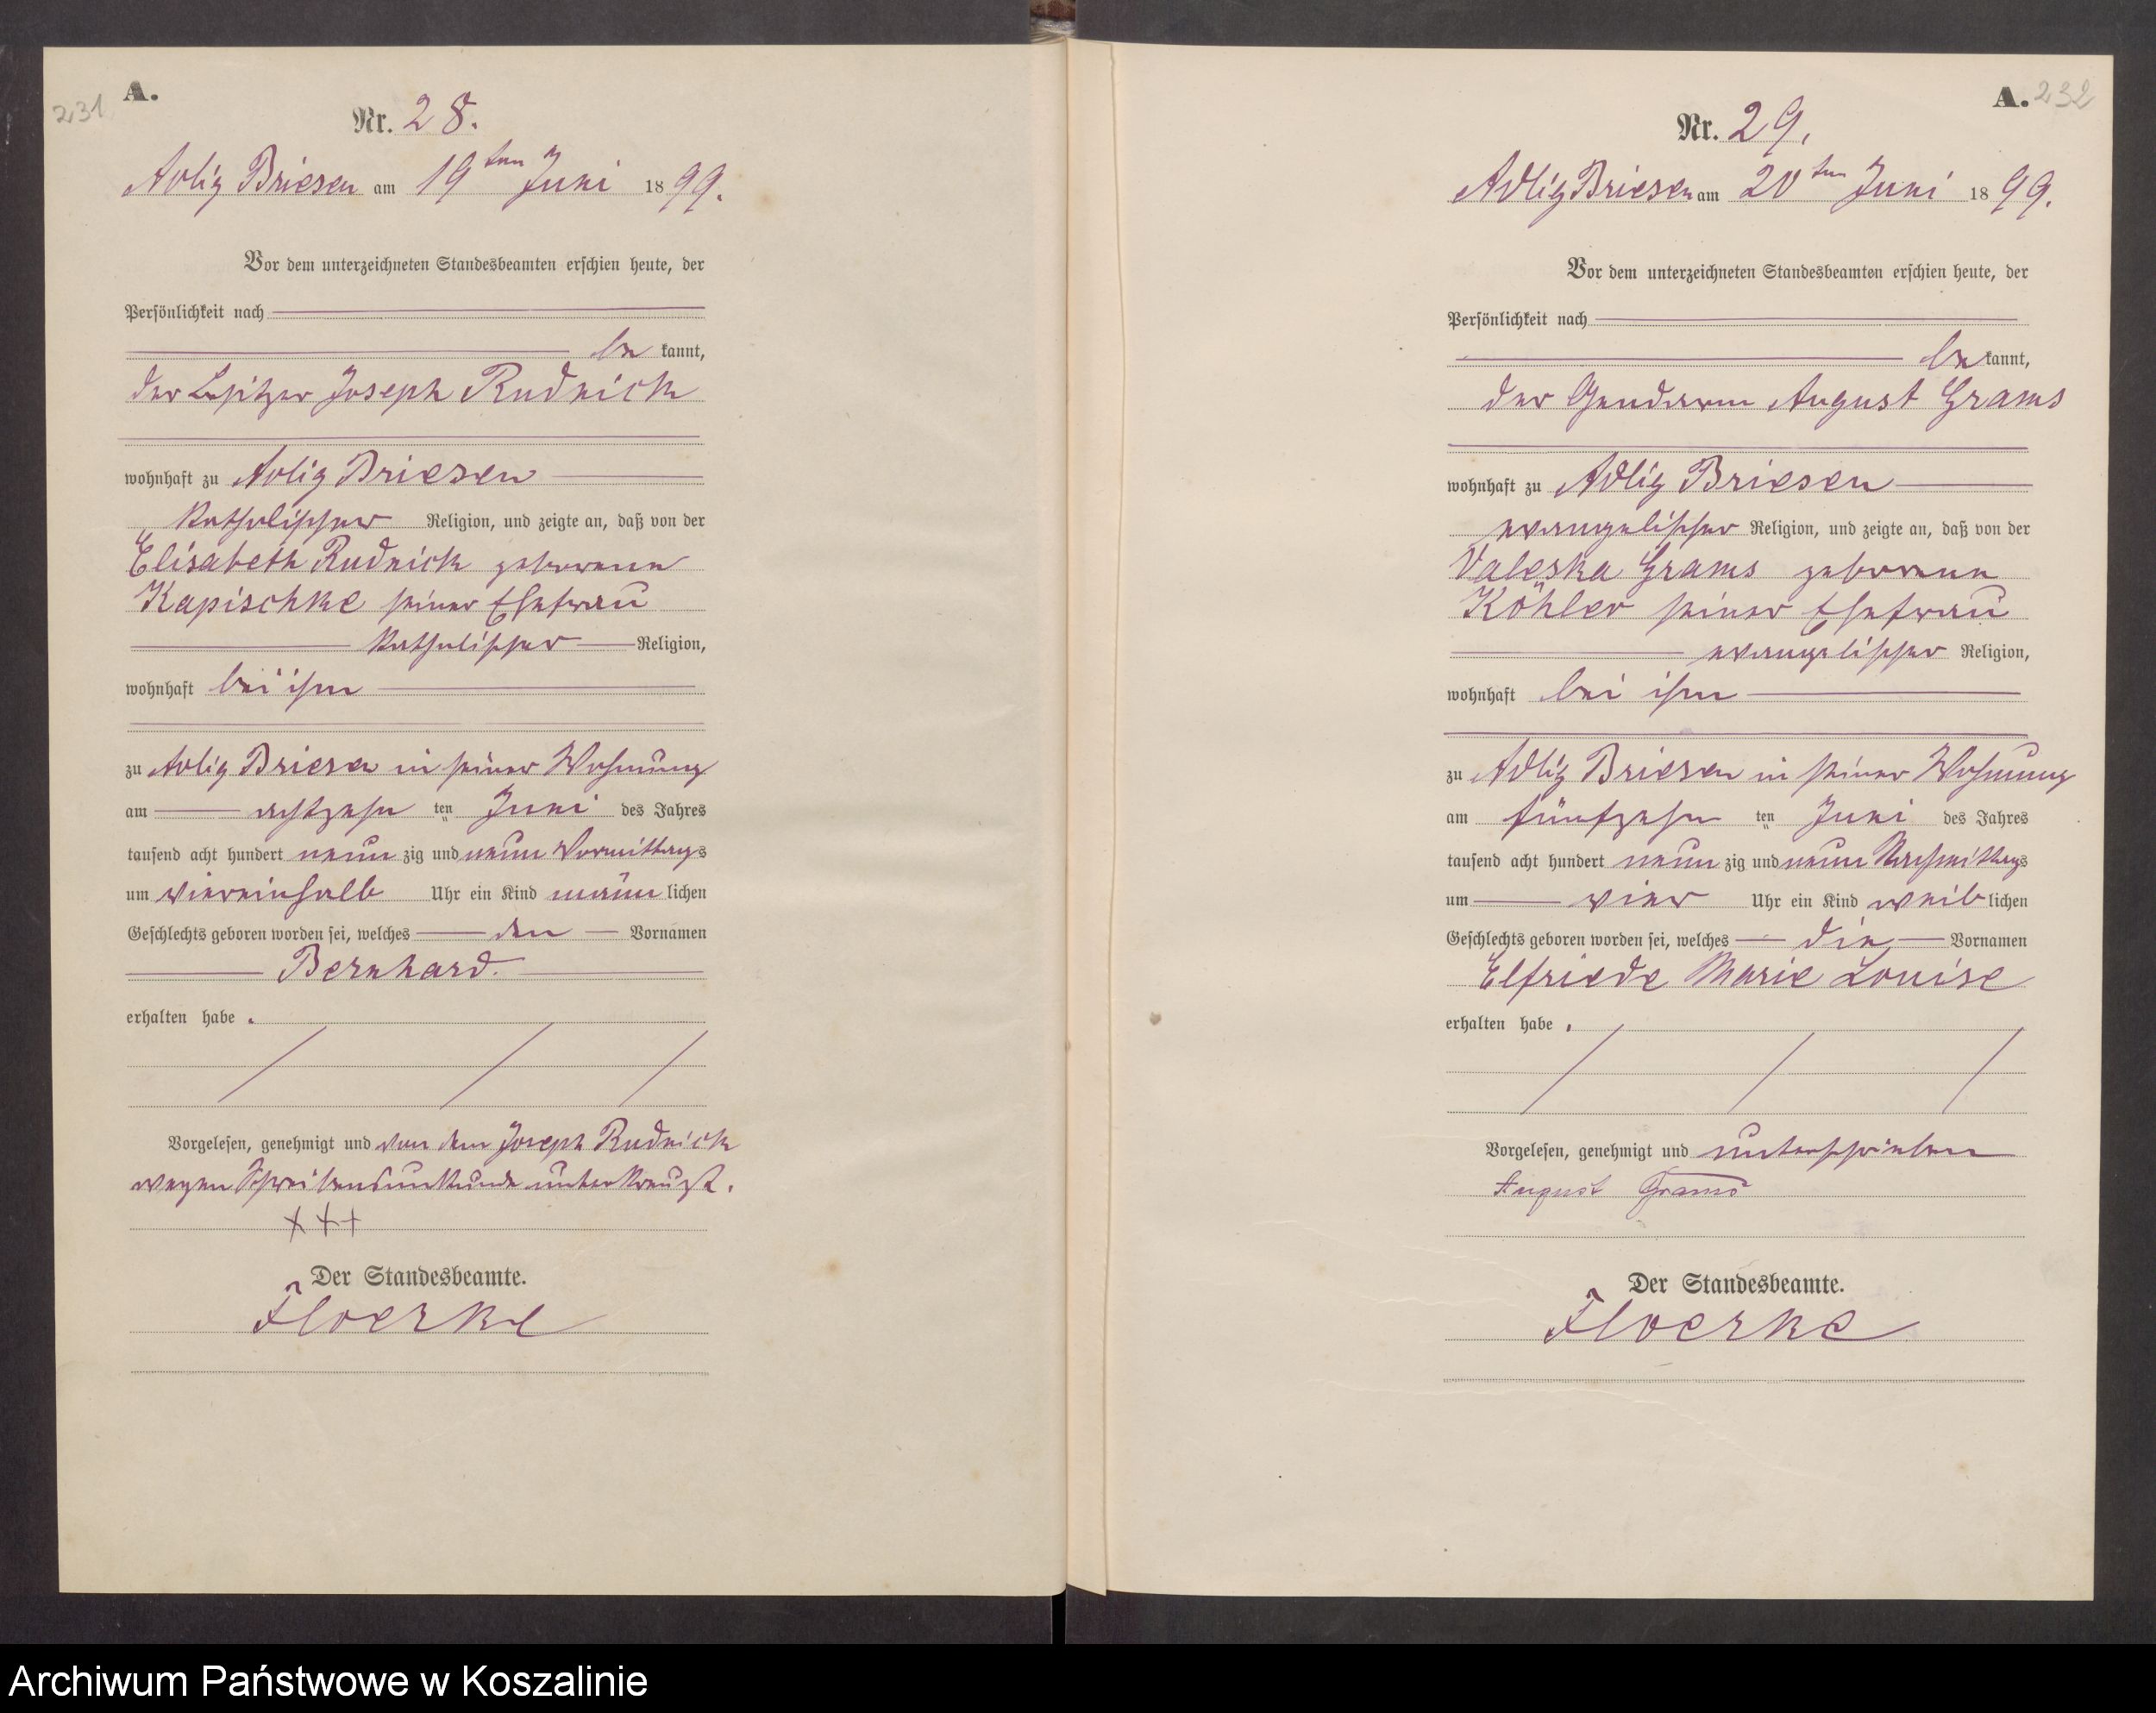 231
A.
Nr. 28.
Adlig Briesen am 19ten Juni 1899.
Vor dem unterzeichneten Standesbeamten erschien heute, der
Persönlichkeit nach
be kannt,
der Besitzer Joseph Rudnick
wohnhaft zu Adlig Briesen
katholischer Religion, und zeigte an, daß von der
Elisabeth Rudnick geborene
Kapischke seiner Ehefrau
katholischer Religion,
wohnhaft bei ihm
zu Adlig Briesen in seiner Wohnung
am achtzehn ten Juni des Jahres
tausend acht hundert neun zig und neun Vormittags
um viereinhalb Uhr ein Kind männ lichen
Geschlechts geboren worden sei, welches den Vornamen
Bernhard.
erhalten habe.
Vorgelesen, genehmigt und von dem Joseph Rudnick
wegen Schreibensunkunde unterkreuzt.
+++
Der Standesbeamte.
Floerke
A. 232
Nr. 29.
Adlig Briesen am 20ten Juni 1899.
Vor dem unterzeichneten Standesbeamten erschien heute, der
Persönlichkeit nach
be kannt,
der Gendarm August Grams
wohnhaft zu Adlig Briesen
evangelischer Religion, und zeigte an, daß von der
Valeska Grams geborene
Köhler seiner Ehefrau
evangelischer Religion,
wohnhaft bei ihm
zu Adlig Briesen in seiner Wohnung
am fünfzehn ten Juni des Jahres
tausend acht hundert neun zig und neun Nachmittags
um vier Uhr ein Kind weib lichen
Geschlechts geboren worden sei, welches die Vornamen
Elfriede Marie Louise
erhalten habe.
Vorgelesen, genehmigt und unterschrieben
August Grams
Der Standesbeamte.
Floerke
Archiwum Państwowe w Koszalinie